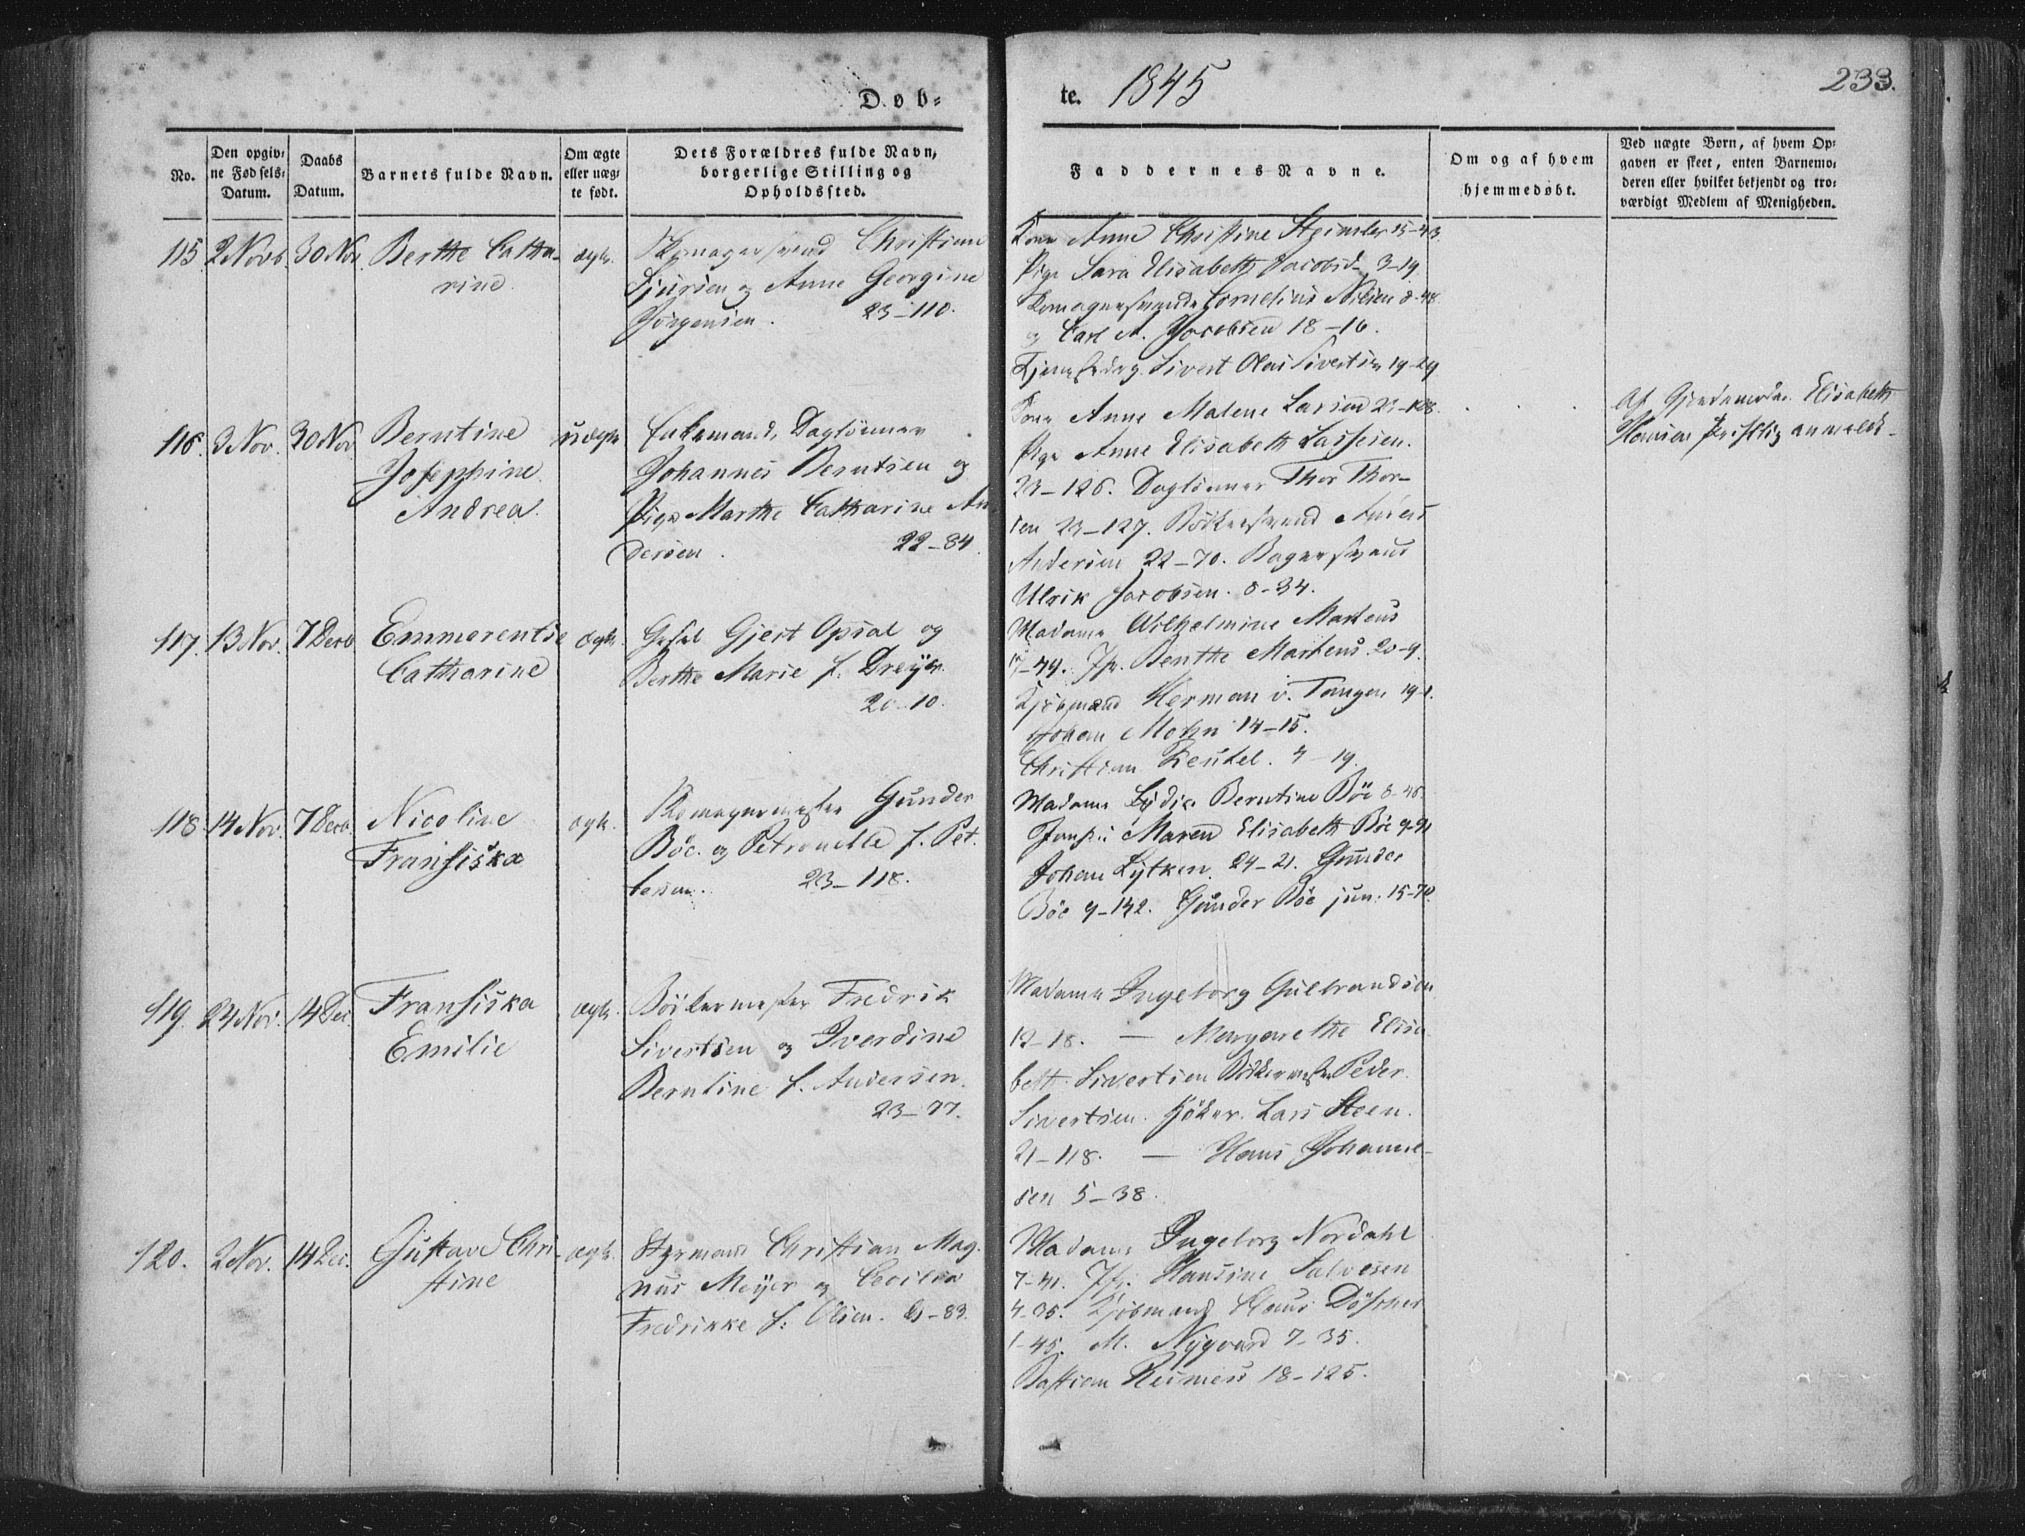 Døb-
te. 1845
233.
No.
Den opgiv-
ne Fødsels-
Datum.
Daabs
Datum.
Barnets fulde Navn.
Om ægte
eller uæg-
te født.
Dets Forældres fulde Navn,
borgerlige Stilling og
Opholdssted.
Faddernes Navne.
Om og af hvem
hjemmedøbt.
Ved uægte Børn, af hvem Op-
gaven er skeet, enten Barnemo-
deren eller hvilket bekjendt og tro-
værdigt Medlem af Menigheden.
115
2 Novb.
30 Nov.
Berthe Catha-
rine
ægte.
Skomagersvend Christian
Sjursen og Anne Georgine
Jörgensen. 23-110.
Kone Anne Christine Steimler 15-43.
Pige Sara Elisabeth Jacobsd. 3-19.
Skomagersvende Cornelius Nilsen 8-48
og Carl A. Jacobsen 18-16.
Sivert Olai Sivertsen 19-29
116.
3 Nov.
30 Nov
Berntine
Josephine
Andrea.
uægte
Enkemand, Daglönner
Johannes Berntsen og
Pige Marthe Catharine An-
dersen. 22-84.
Kone Anne Malene Larsen 23-108.
Pige Anne Elisabeth Lassesen.
23-126. Daglönner Thor Thor-
sen 23-127. Bödkersvend
Andersen 22-70. Bagersvend
Ulrik Jacobsen. 8-34.
Af Gjordemoder Elisabeth
Hansen skriftlig anmeldt.
117.
13 Nov.
7 Decb
Emmerentse
Catharine
ægte.
Gjert Opsal og
Berthe Marie f. Dreyer
20-10.
Madame Wilhelmine Martens
17-49. Jfr. Benthe Martens. 20-9.
Kjöbmand Herman v. Tangen 19-1.
Johan Mohn 14-15.
Christian Keutel. 4-19.
118
14 Nov.
7 Decb.
Nicoline
Fransiska
ægte.
Skomagermester Gunder
Böe. og Petronelle f. Pet-
tersen. 23-118.
Madame Lydia Berntine Böe 8-46.
Maren Elisabeth Böe 9-91
Johan Lytken. 24-21. Gunder
Böe 9-142. Gunder Böe jun. 15-70.
119.
24 Nov.
14 Dec.
Fransiska
Emilie
ægte.
Bödkermester Fredrik
Sivertsen og Iverdine
Berntine f. Andersen.
23-77.
Madame Ingeborg Gulbrandsen
12-18. — Margarethe Elisa-
beth Sivertsen Bödkermester Peder
Sivertsen. Höker. Lars Steen.
21-118. — Hans Johanne-
sen 5-38.
120.
2 Nov.
14 Dec.
Gustava Chri-
stine
ægte.
Styrmand Christian Mag-
nus Meyer og Cecilia
Fredrikke f: Olsen. 21-83.
Madame Ingeborg Nordahl
7-41. Jfr. Hansine Salvesen
4-35. Kjöbmand Claus Döscher
1-45. M. Nygaard 7-35.
Bastian Reimers 18-125.